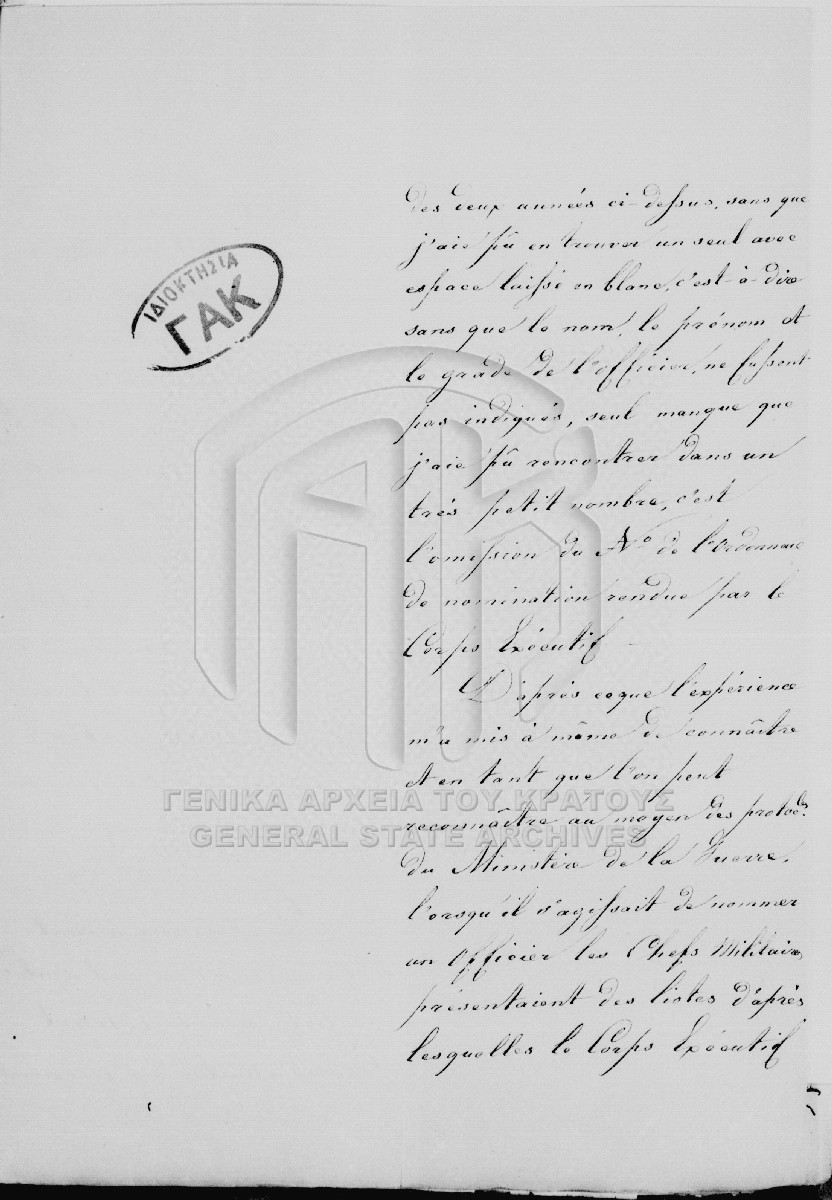 ΙΔΙΟΚΤΗΣΙΑ
ΓΑΚ
des deux années ci-dessus, sans que
j'aie pû en trouver un seul avec
espace laissé en blanc, c'est-à-dire
sans que le nom, le prénom et
le grade de l'officier, ne fussent
pas indiqués, seul manque que
j'aie pû rencontrer dans un
trés petit nombre, c'est
l'omission du Nº de l'Ordonnance
de nomination rendue par le
Corps Exécutif
D'après ce que l'expérience
m'a mis à même de connaître
et en tant que l'on peut
reconnaître au moyen des
du Ministère de la Guerre,
lorsqu'il s'agissait de nommer
un Officier les Chefs Militaires
présentaient des listes d'après
lesquelles le Corps Exécutif
ΓΕΝΙΚΑ ΑΡΧΕΙΑ ΤΟΥ ΚΡΑΤΟΥΣ
GENERAL STATE ARCHIVES